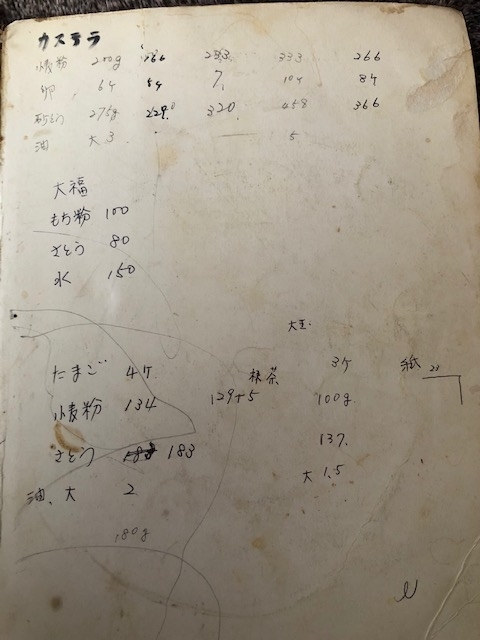 カステラ
小麦粉 200g 166 233 333 266
卵 6ケ 5ケ 7 10ケ 8ケ
砂とう 275g 229 320 458 366
油 大3 5
大福
もち粉 100
さとう 80
水 150
大玉
たまご 4ケ 抹茶 3ケ 紙 23
小麦粉 134 129+5 100g
さとう 183 137
油、大 2 大 1.5
180g